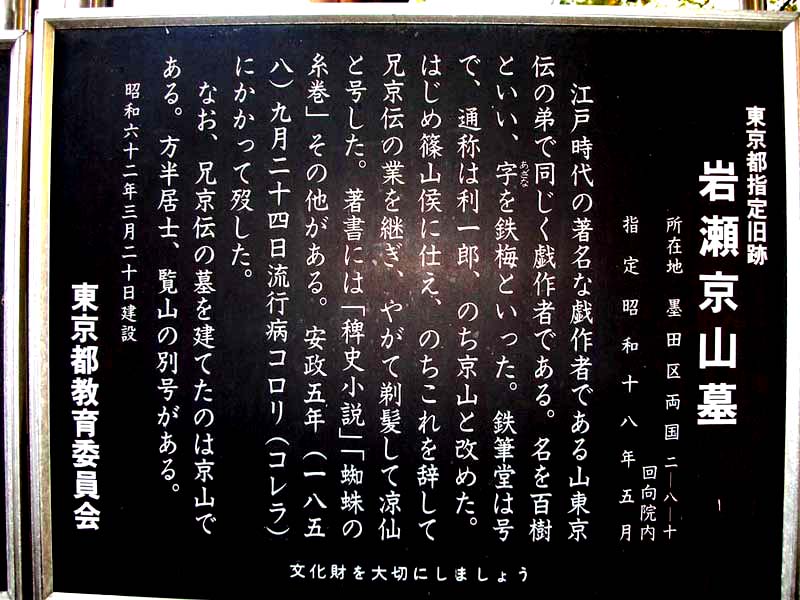 東京都指定旧跡
岩瀬京山墓
所在地　墨田区両国二―八―十
回向院内
指定　昭和十八年五月
江戸時代の著名な戯作者である山東京
伝の弟で同じく戯作者である。名を百樹
といい、字を鉄梅といった。鉄筆堂は号
あざな
で、通称は利一郎、のち京山と改めた。
はじめ篠山侯に仕え、のちこれを辞して
兄京伝の業を継ぎ、やがて剃髪して凉仙
と号した。著書には「稗史小説」「蜘蛛の
糸巻」その他がある。安政五年（一八五
八）九月二十四日流行病コロリ（コレラ）
にかかって歿した。
なお、兄京伝の墓を建てたのは京山で
ある。方半居士、覧山の別号がある。
昭和六十二年三月二十日建設
東京都教育委員会
文化財を大切にしましょう